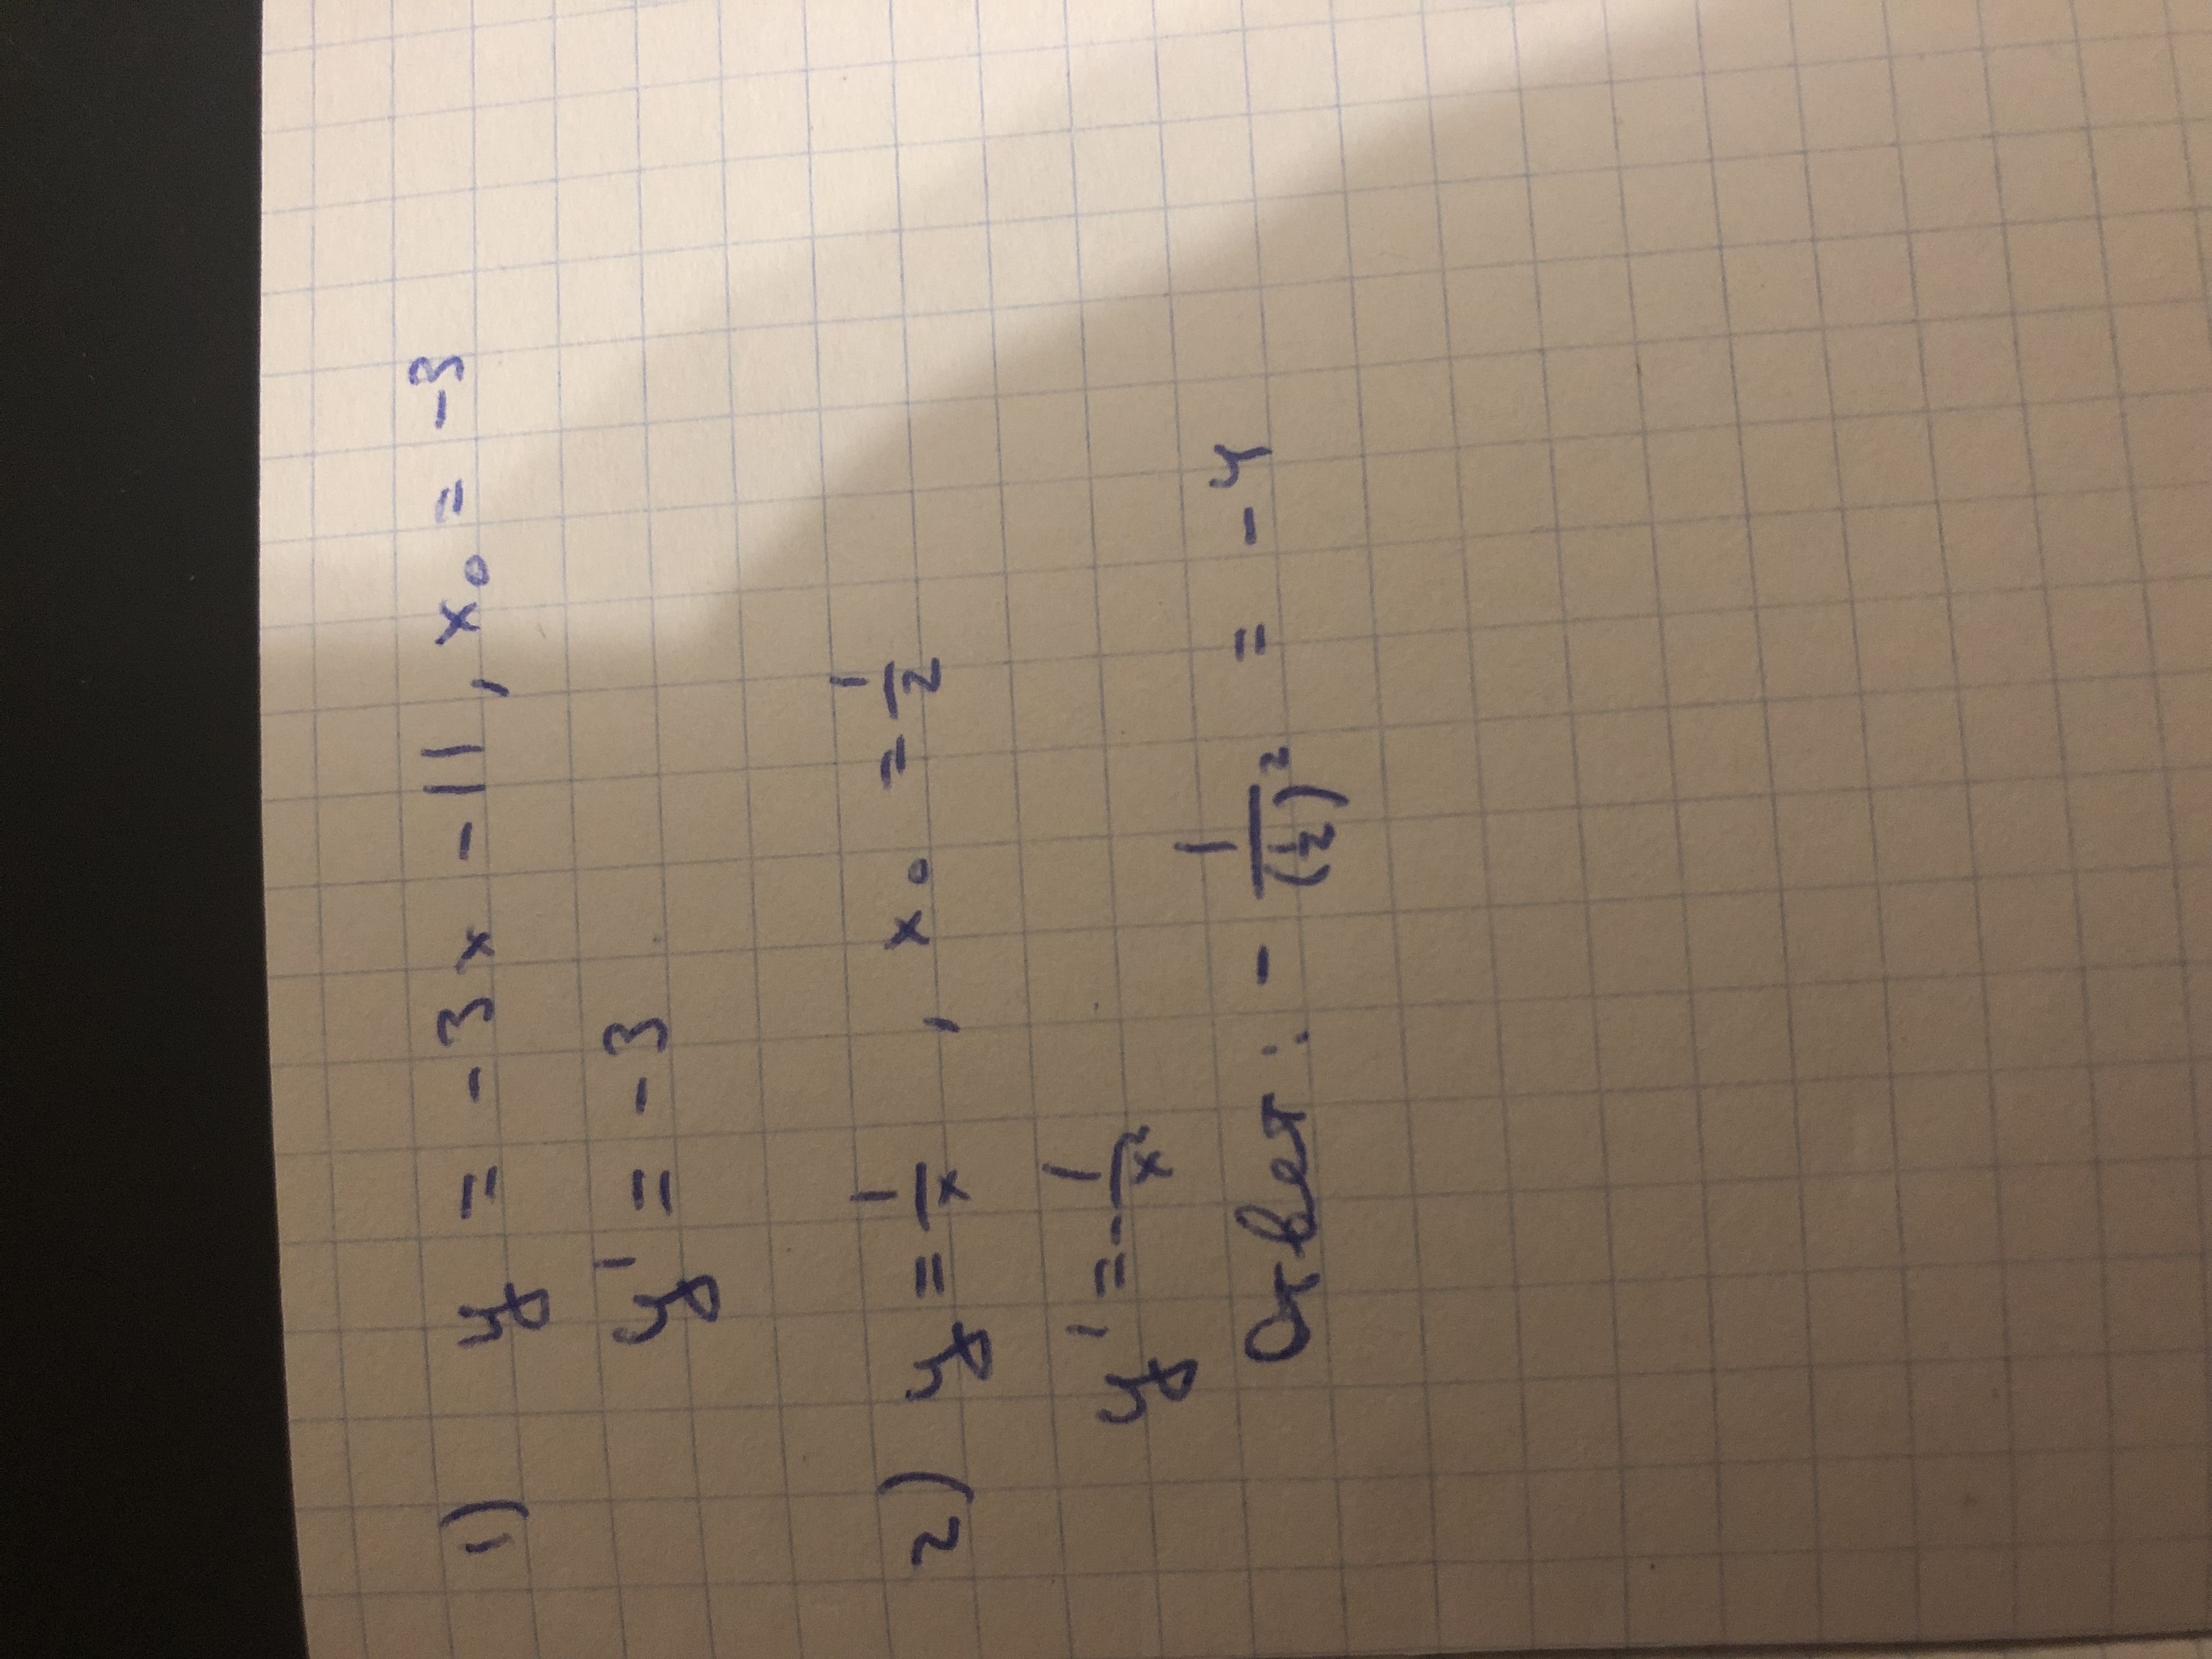 1) y = -3x - 11, x₀ = -3
y' = -3
2) y = 1/x, x₀ = 1/2
y' = -1/x²
Ответ: - 1/(1/2)² = -4